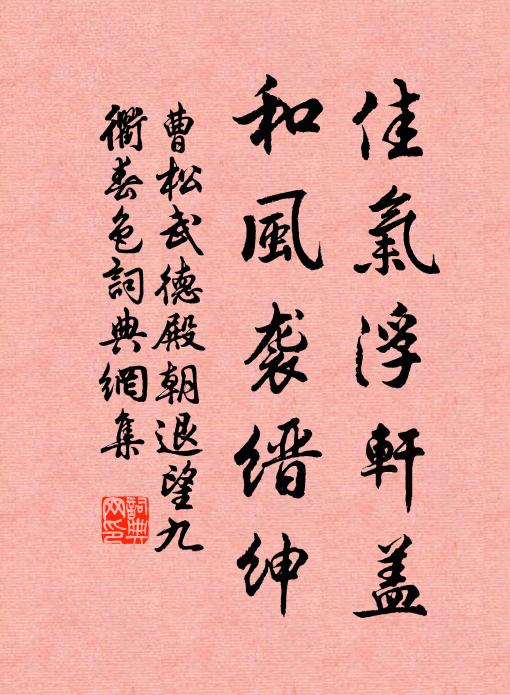 佳氣浮軒盖
和風袭缙紳
曹松武德殿朝退望九
衢春色詞典網集
詞典网印